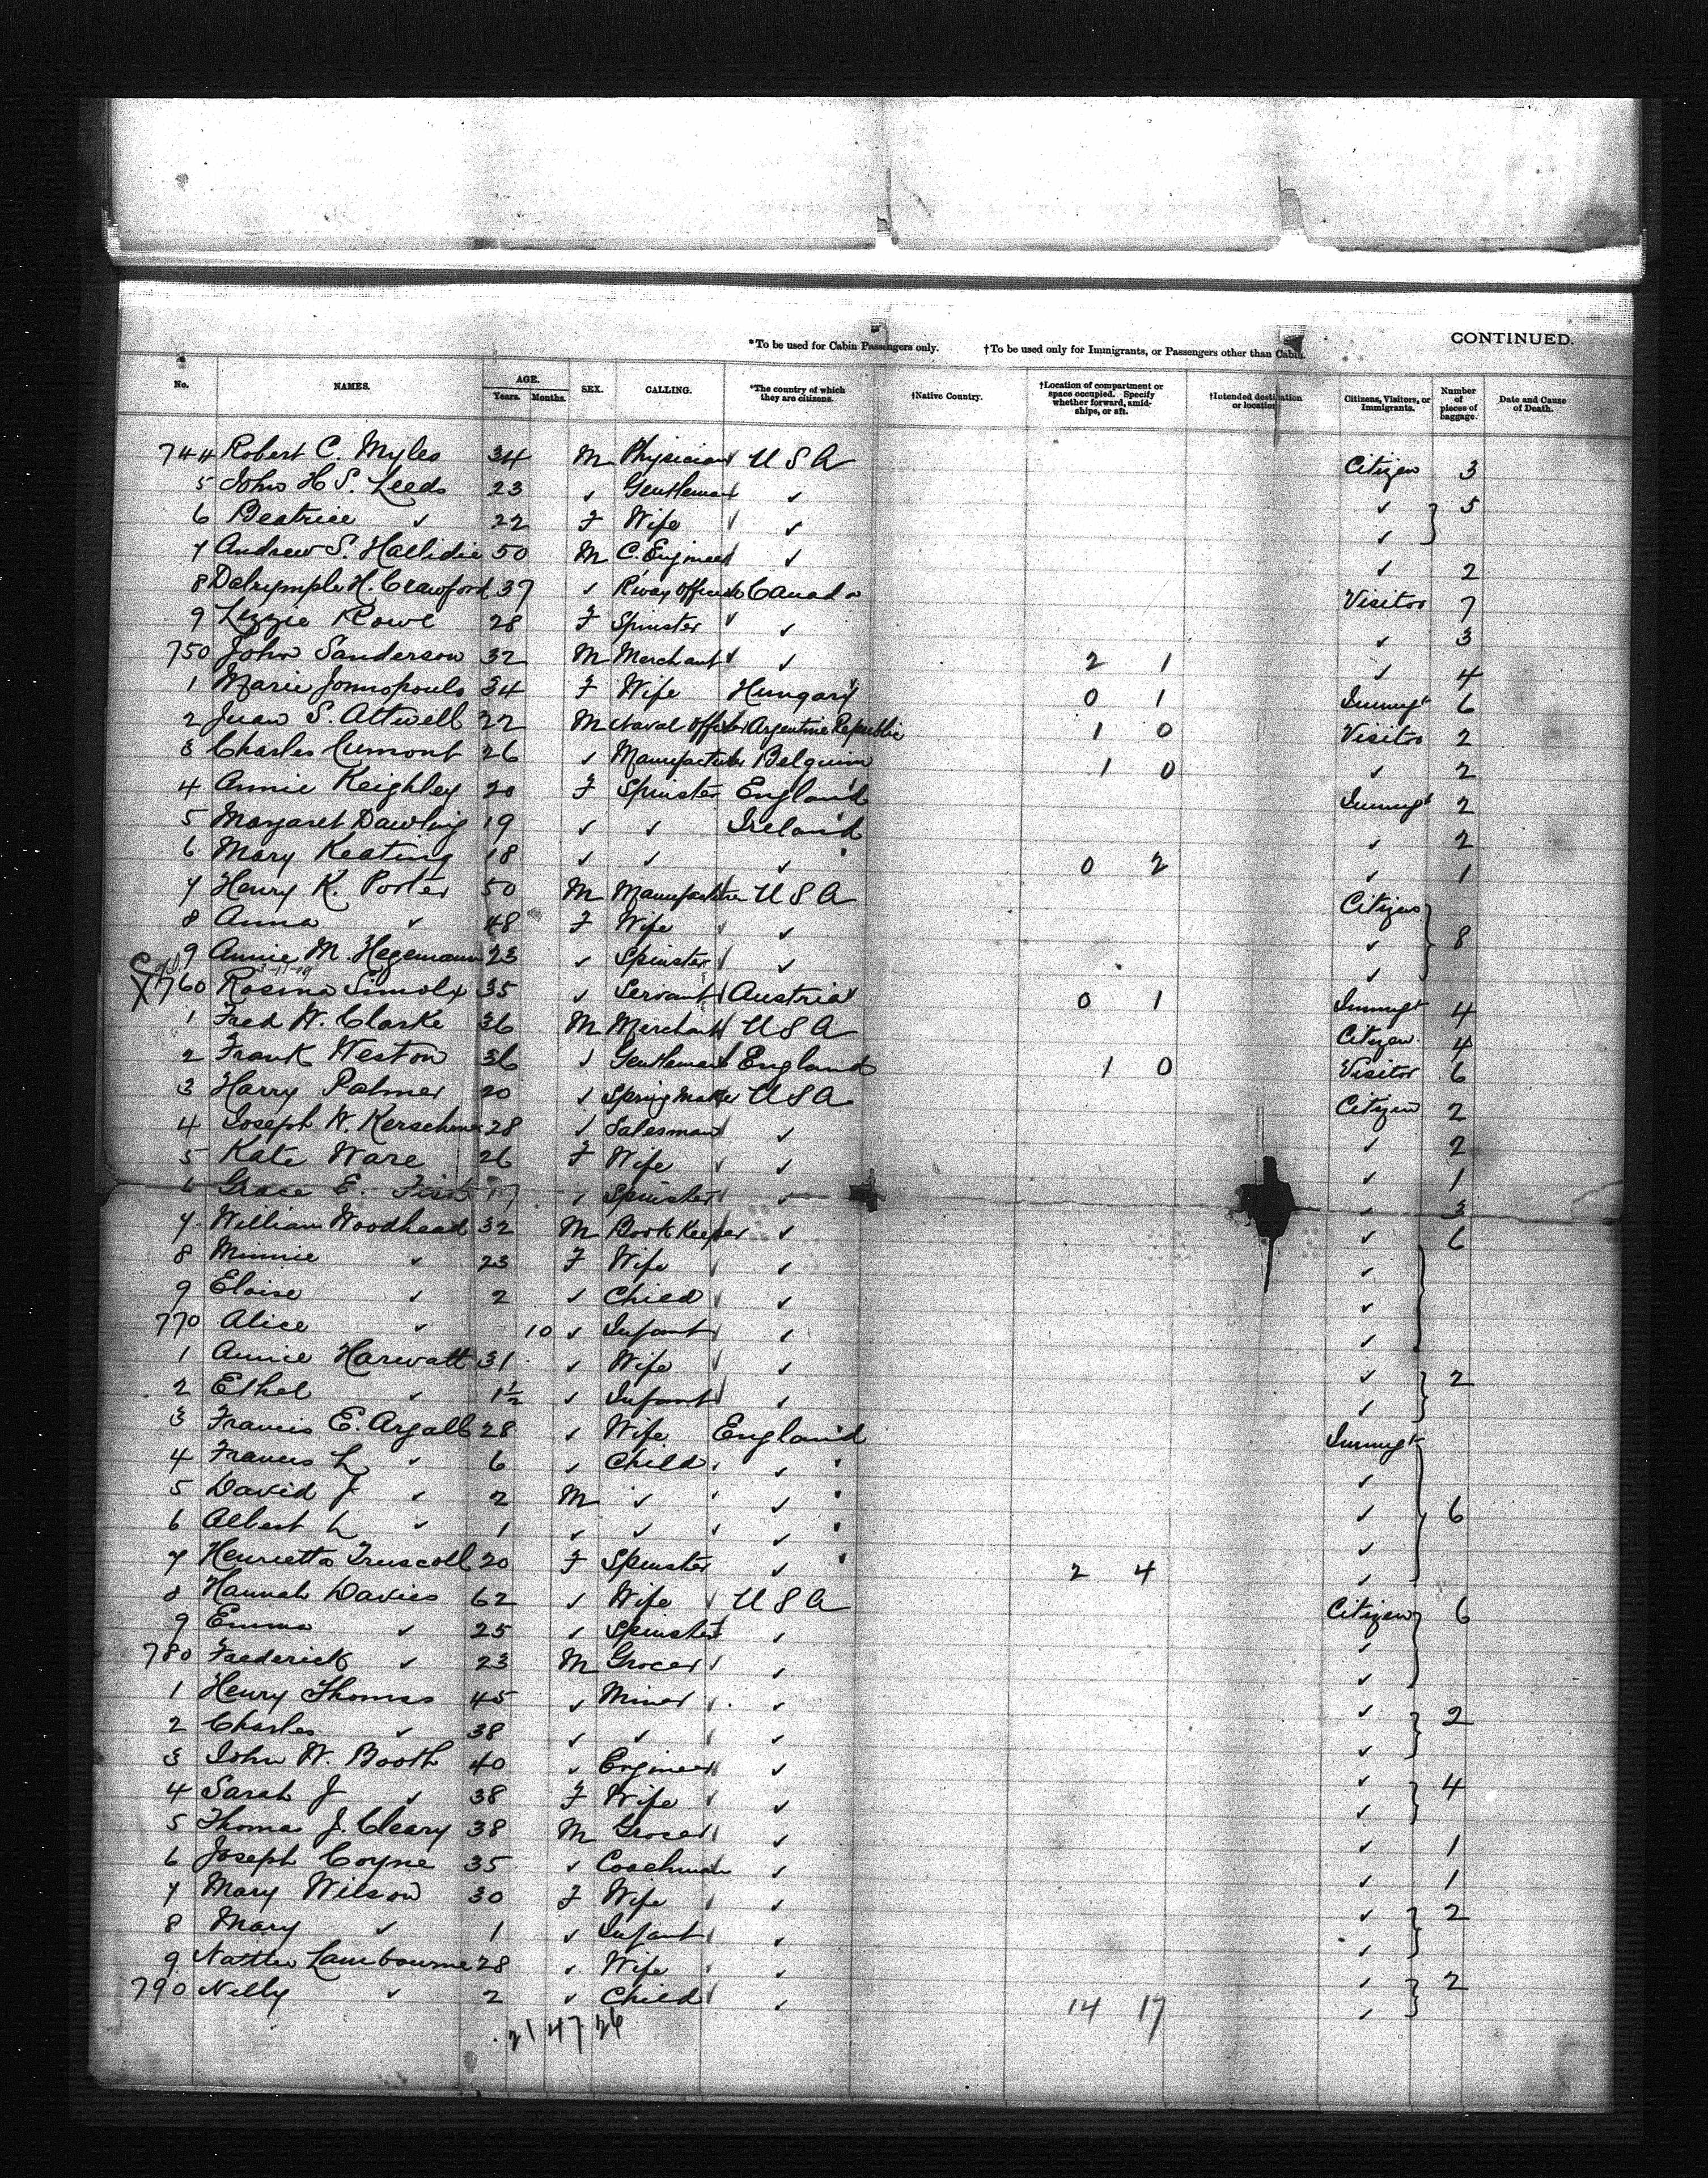 CONTINUED.
*To be used for Cabin Passengers only. †To be used only for Immigrants, or Passengers other than Cabin.
No. NAMES. AGE. Years. Months. SEX. CALLING. *The country of which they are citizens. †Native Country. †Location of compartment or space occupied. Specify whether forward, amidships, or aft. †Intended destination or location Citizens, Visitors, or Immigrants. Number of pieces of baggage. Date and Cause of Death.
744 Robert C. Myles 34 M Physician ✓ U S A Citizen 3
5 John H S. Leeds 23 ✓ Gentleman ✓ ✓ 5
6 Beatrice ✓ 22 F Wife ✓ ✓ ✓
7 Andrew S. Hallidie 50 M C. Engineer ✓ ✓ 2
8 Dalrymple H. Crawford 37 ✓ R'way Canada Visitor 7
9 Lizzie Rowe 28 F Spinster ✓ ✓ ✓ 3
750 John Sanderson 32 M Merchant ✓ ✓ 2 1 ✓ 4
1 Marie 34 F Wife Hungary 0 1 Immigt 6
2 Juan S. Attwell 22 M Naval Officer Argentine Republic 1 0 Visitor 2
3 Charles Cumont 26 ✓ Manufacturer Belguim 1 0 ✓ 2
4 Annie Keighley 20 F Spinster England Immigt 2
5 Margaret Dawling 19 ✓ ✓ Ireland ✓ 2
6 Mary Keating 18 ✓ ✓ ✓ 0 2 ✓ 1
7 Henry K. Porter 50 M U S A Citizen
8 Anna ✓ 48 F Wife ✓ ✓ ✓ 8
9 Annie M. Hegemann 23 ✓ Spinster ✓ ✓ ✓
X 760 Rosina 35 ✓ Servant Austria 0 1 Immigt 4
1 Fred W. Clarke 36 M Merchant U S A Citizen 4
2 Frank Weston 36 ✓ Gentleman England 1 0 Visitor 6
3 Harry Palmer 20 ✓ Spring Maker U S A Citizen 2
4 Joseph W. 28 ✓ Salesman ✓ ✓ 2
5 Kate Ware 26 F Wife ✓ ✓ ✓ 1
6 Grace E. 17 ✓ Spinster ✓ ✓ 3
7 William Woodhead 32 M Book Keeper ✓ ✓ 6
8 Minnie ✓ 23 F Wife ✓ ✓ ✓
9 Eloise ✓ 2 ✓ Child ✓ ✓ ✓
770 Alice ✓ 10 ✓ Infant ✓ ✓
1 Annie Harwatt 31 ✓ Wife ✓ ✓ ✓ 2
2 Ethel ✓ 1½ ✓ Infant ✓ ✓
3 Francis E. Argall 28 ✓ Wife England Immigt
4 Frances L ✓ 6 ✓ Child ✓ ✓
5 David J ✓ 2 M ✓ ✓ ✓ 6
6 Albert L ✓ 1 ✓ ✓ ✓ ✓ ✓
7 Henrietta Truscott 20 F Spinster ✓ 2 4 ✓
8 Hannah Davies 62 ✓ Wife ✓ U S A Citizen 6
9 Emma ✓ 25 ✓ Spinster ✓ ✓
780 Frederick ✓ 23 M Grocer ✓ ✓
1 Henry Thomas 45 ✓ Miner ✓ ✓ 2
2 Charles ✓ 38 ✓ ✓ ✓ ✓ ✓
3 John W. Booth 40 ✓ Engineer ✓ ✓ 4
4 Sarah J ✓ 38 F Wife ✓ ✓ ✓
5 Thomas J. Cleary 38 M Grocer ✓ ✓ 1
6 Joseph Coyne 35 ✓ Coachman ✓ ✓ 1
7 Mary Wilson 30 F Wife ✓ ✓ ✓ 2
8 Mary ✓ 1 ✓ Infant ✓ ✓
9 Lambourne 28 ✓ Wife ✓ ✓ 2
790 Nelly ✓ 2 ✓ Child ✓ 14 17 ✓
21 47 26